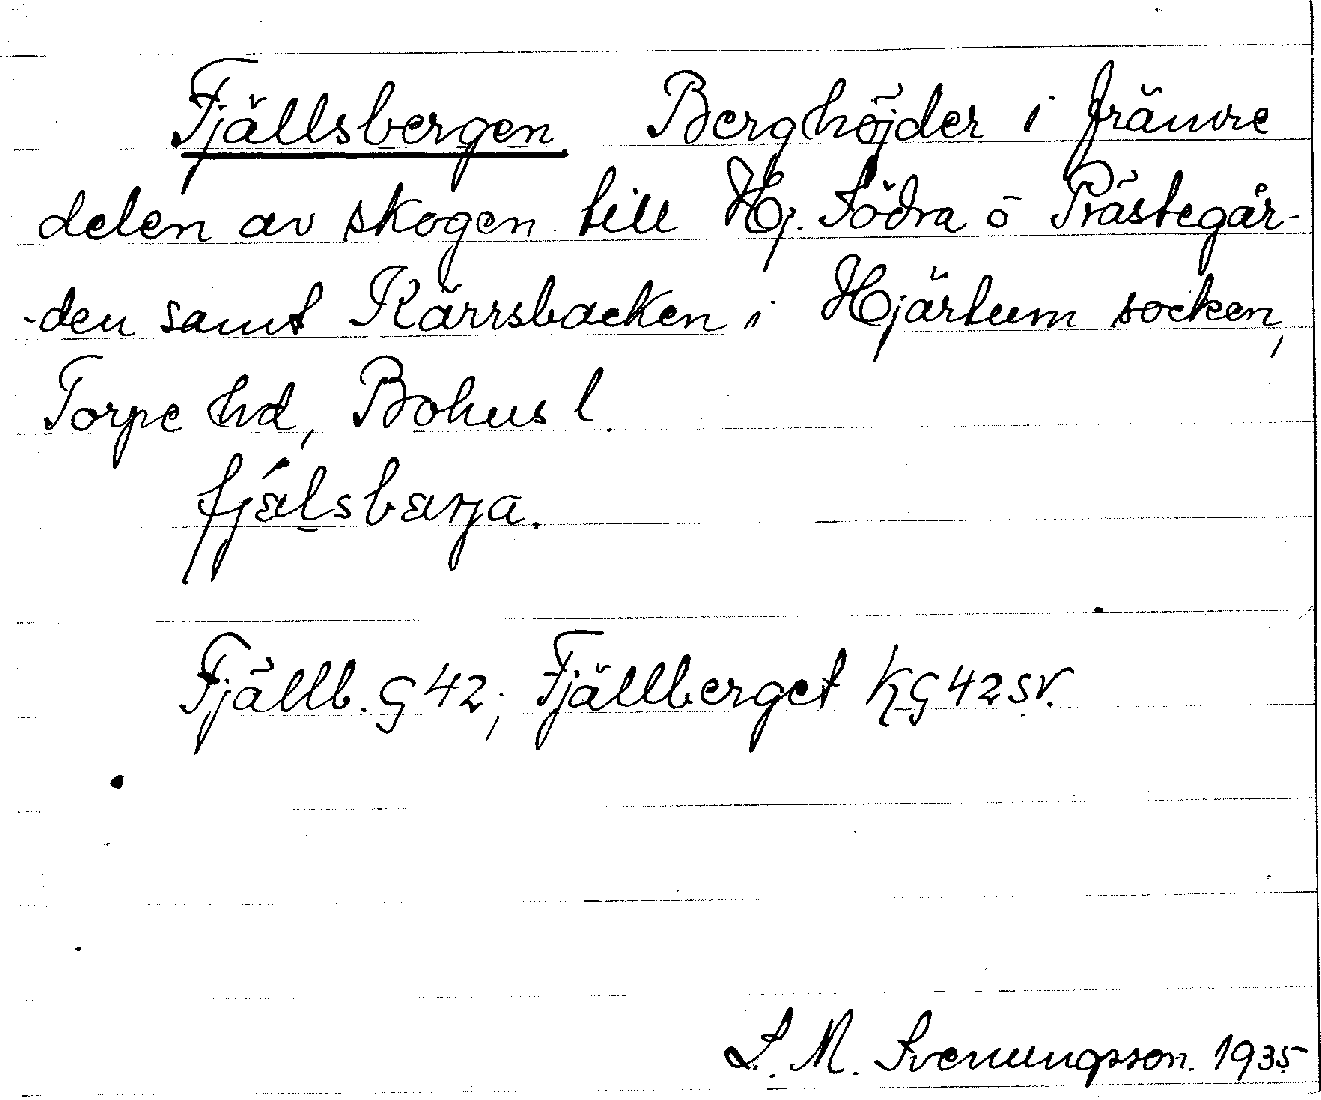 Fjällsbergen Berghöjder i främre
delen av skogen till Hj. Södra o Prästegår-
-den samt Kärrsbacken i Hjärtum socken,
Torpe hd, Bohus l.
fjälsbærja.
Fjällb. G 42; Fjällberget KG 42 SV.
S. M. Svenungsson. 1935